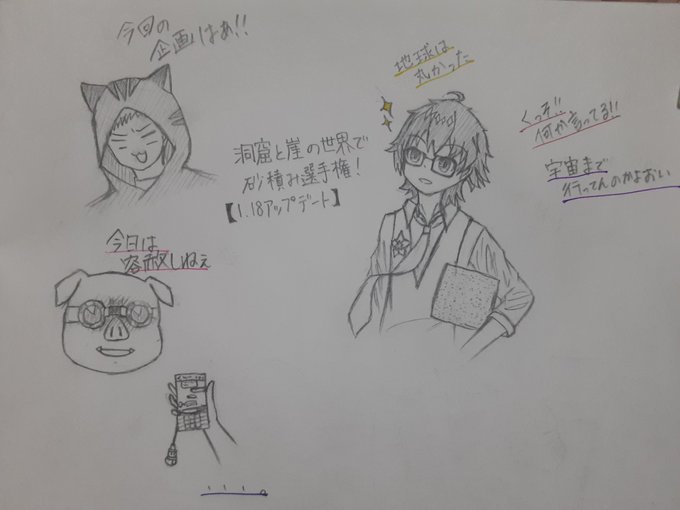 今回の
企画はぁ!!
洞窟と崖の世界で
砂積み選手権!
【1.18アップデート】
地球は
丸かった
くっそ!!
何か言ってる!!
宇宙まで
行ってんのかよおい
今日は
容赦しねぇ